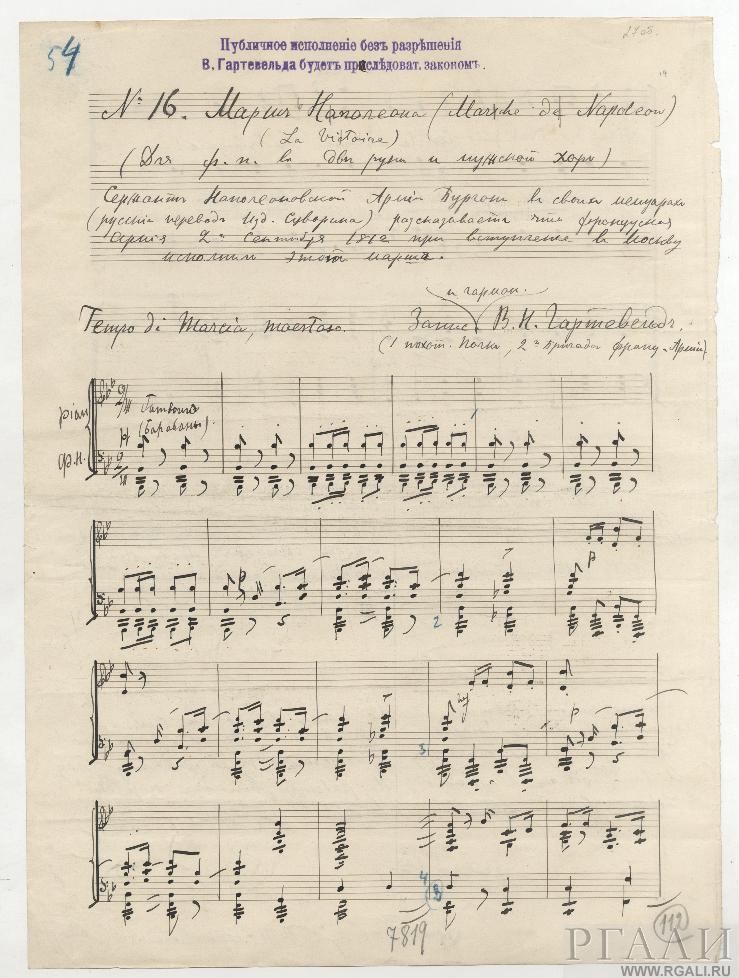 54
2705.
Публичное исполненіе безъ разрѣшенія
В. Гартевельда будетъ прислѣдоват. закономъ.
№ 16. Маршъ Наполеона (Marche de Napoleon)
(La Victoire)
(Для ф.п. въ двѣ руки и мужской хоръ)
Сержантъ Наполеоновской Арміи Бургонь въ своихъ мемуарахъ
(русскій переводъ Изд. Суворина) разсказываетъ что французская
Армія 2го Сентября 1812 при вступленіе въ Москву
исполнил этотъ маршъ.
и гармон.
Tempo di Marcia, maestoso. Запис. В. Н. Гартевельдъ.
(1 пехот. Полка, 2я бригада Франц. Арміи)
piano
ф.п.
(Барабаны).
p
1
2
p
3
p
4
7819
112
РГАЛИ
WWW.RGALI.RU